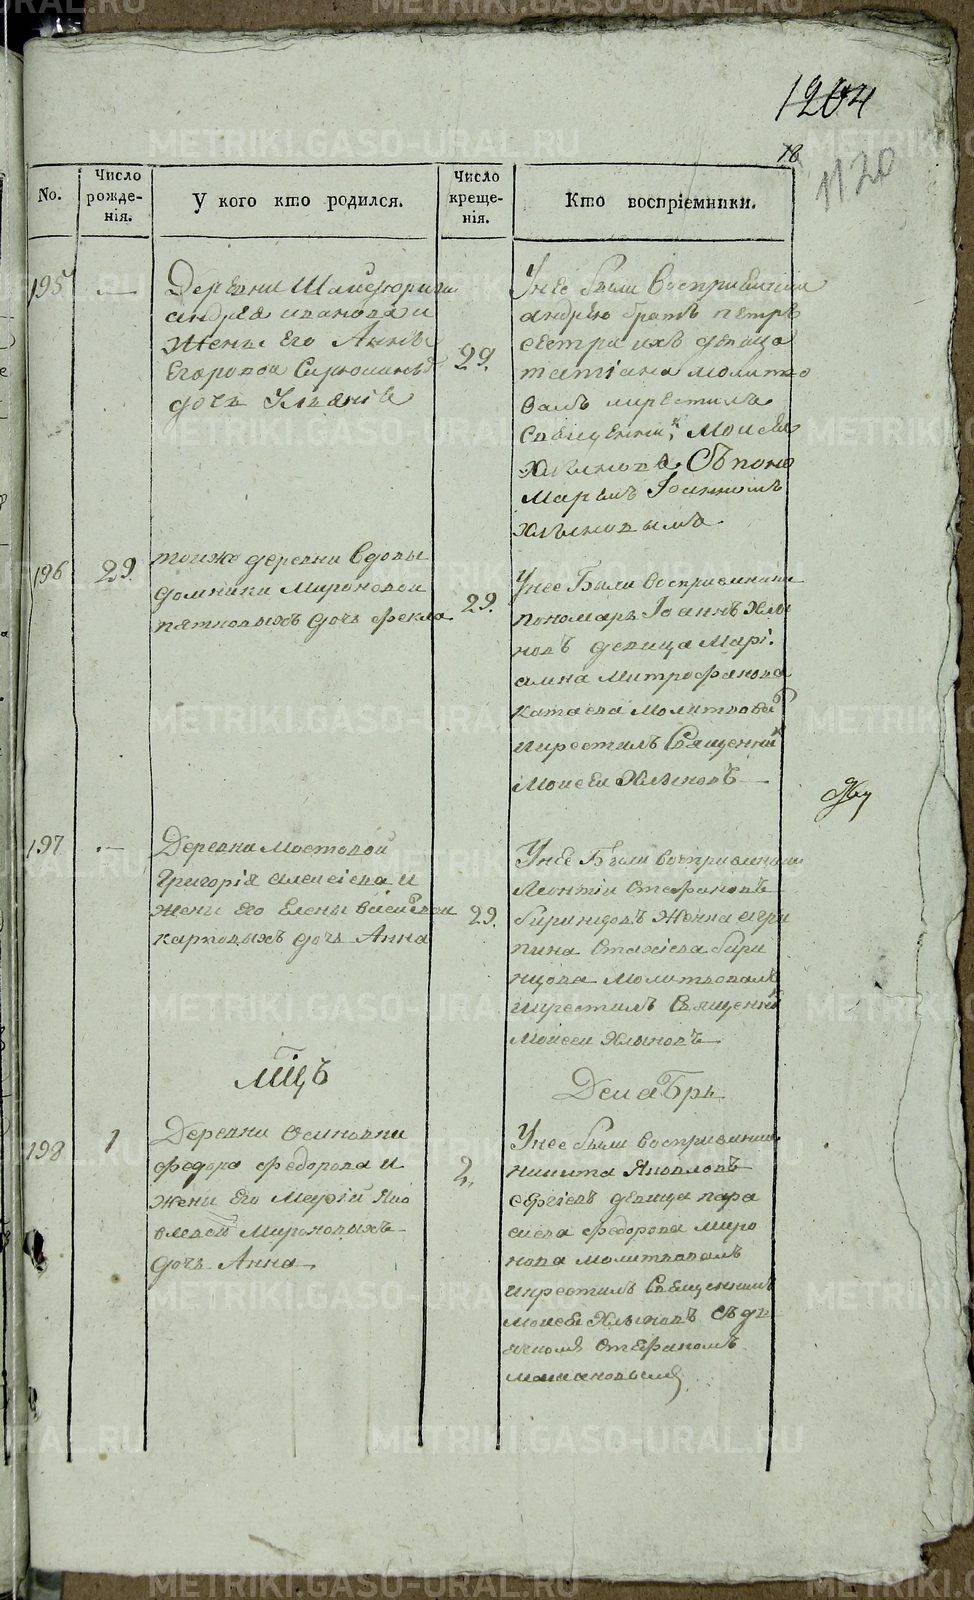 METRIKI.GASO-URAL.RU
1204
18
1120
No.
Число рожде-нія.
У кого кто родился.
Число креще-нія.
Кто воспріемники.
195
—
Деревни
андрея иванова и
жены его Анны
Егоровой
дочь
29.
Унее были восприемники
андрею братъ петръ
сестра ихъ девица
татіана молитво
валъ икрестилъ
священникъ Моисей
Хлыновъ Съ поно
маремъ Іоанномъ
Хлыновымъ
196
29.
тойже деревни вдовы
домники Мироновой
пятковыхъ дочь Фекла
29.
Унее Были восприемники
пономарь Іоаннъ Хлы
новъ девица Марі
амна Митрофанова
катаева Молитвовалъ
икрестилъ Священникъ
Моисей Хлыновъ —
197
—
Деревни Мостовой
Григорія алексіева и
жены его Елены васильевой
карповыхъ дочь Анна
29.
Унее Были восприемники
Леонтій Стефановъ
бирюцовъ Женка агри
пина
молитвовалъ
икрестилъ Священникъ
Моисей Хлыновъ
Мцъ
Декабрь
198
1
Деревни Осиновки
федора федорова и
жены его Марӏй яко
влевой Мироновыхъ
дочь Анна
2.
Унее были восприемники
никита Яковлевъ
Сергіевъ девица пара
скева федорова миро
нова молитвовалъ
икрестилъ Священникъ
моисей Хлыновъ съ дь
ячкомъ Стефаномъ